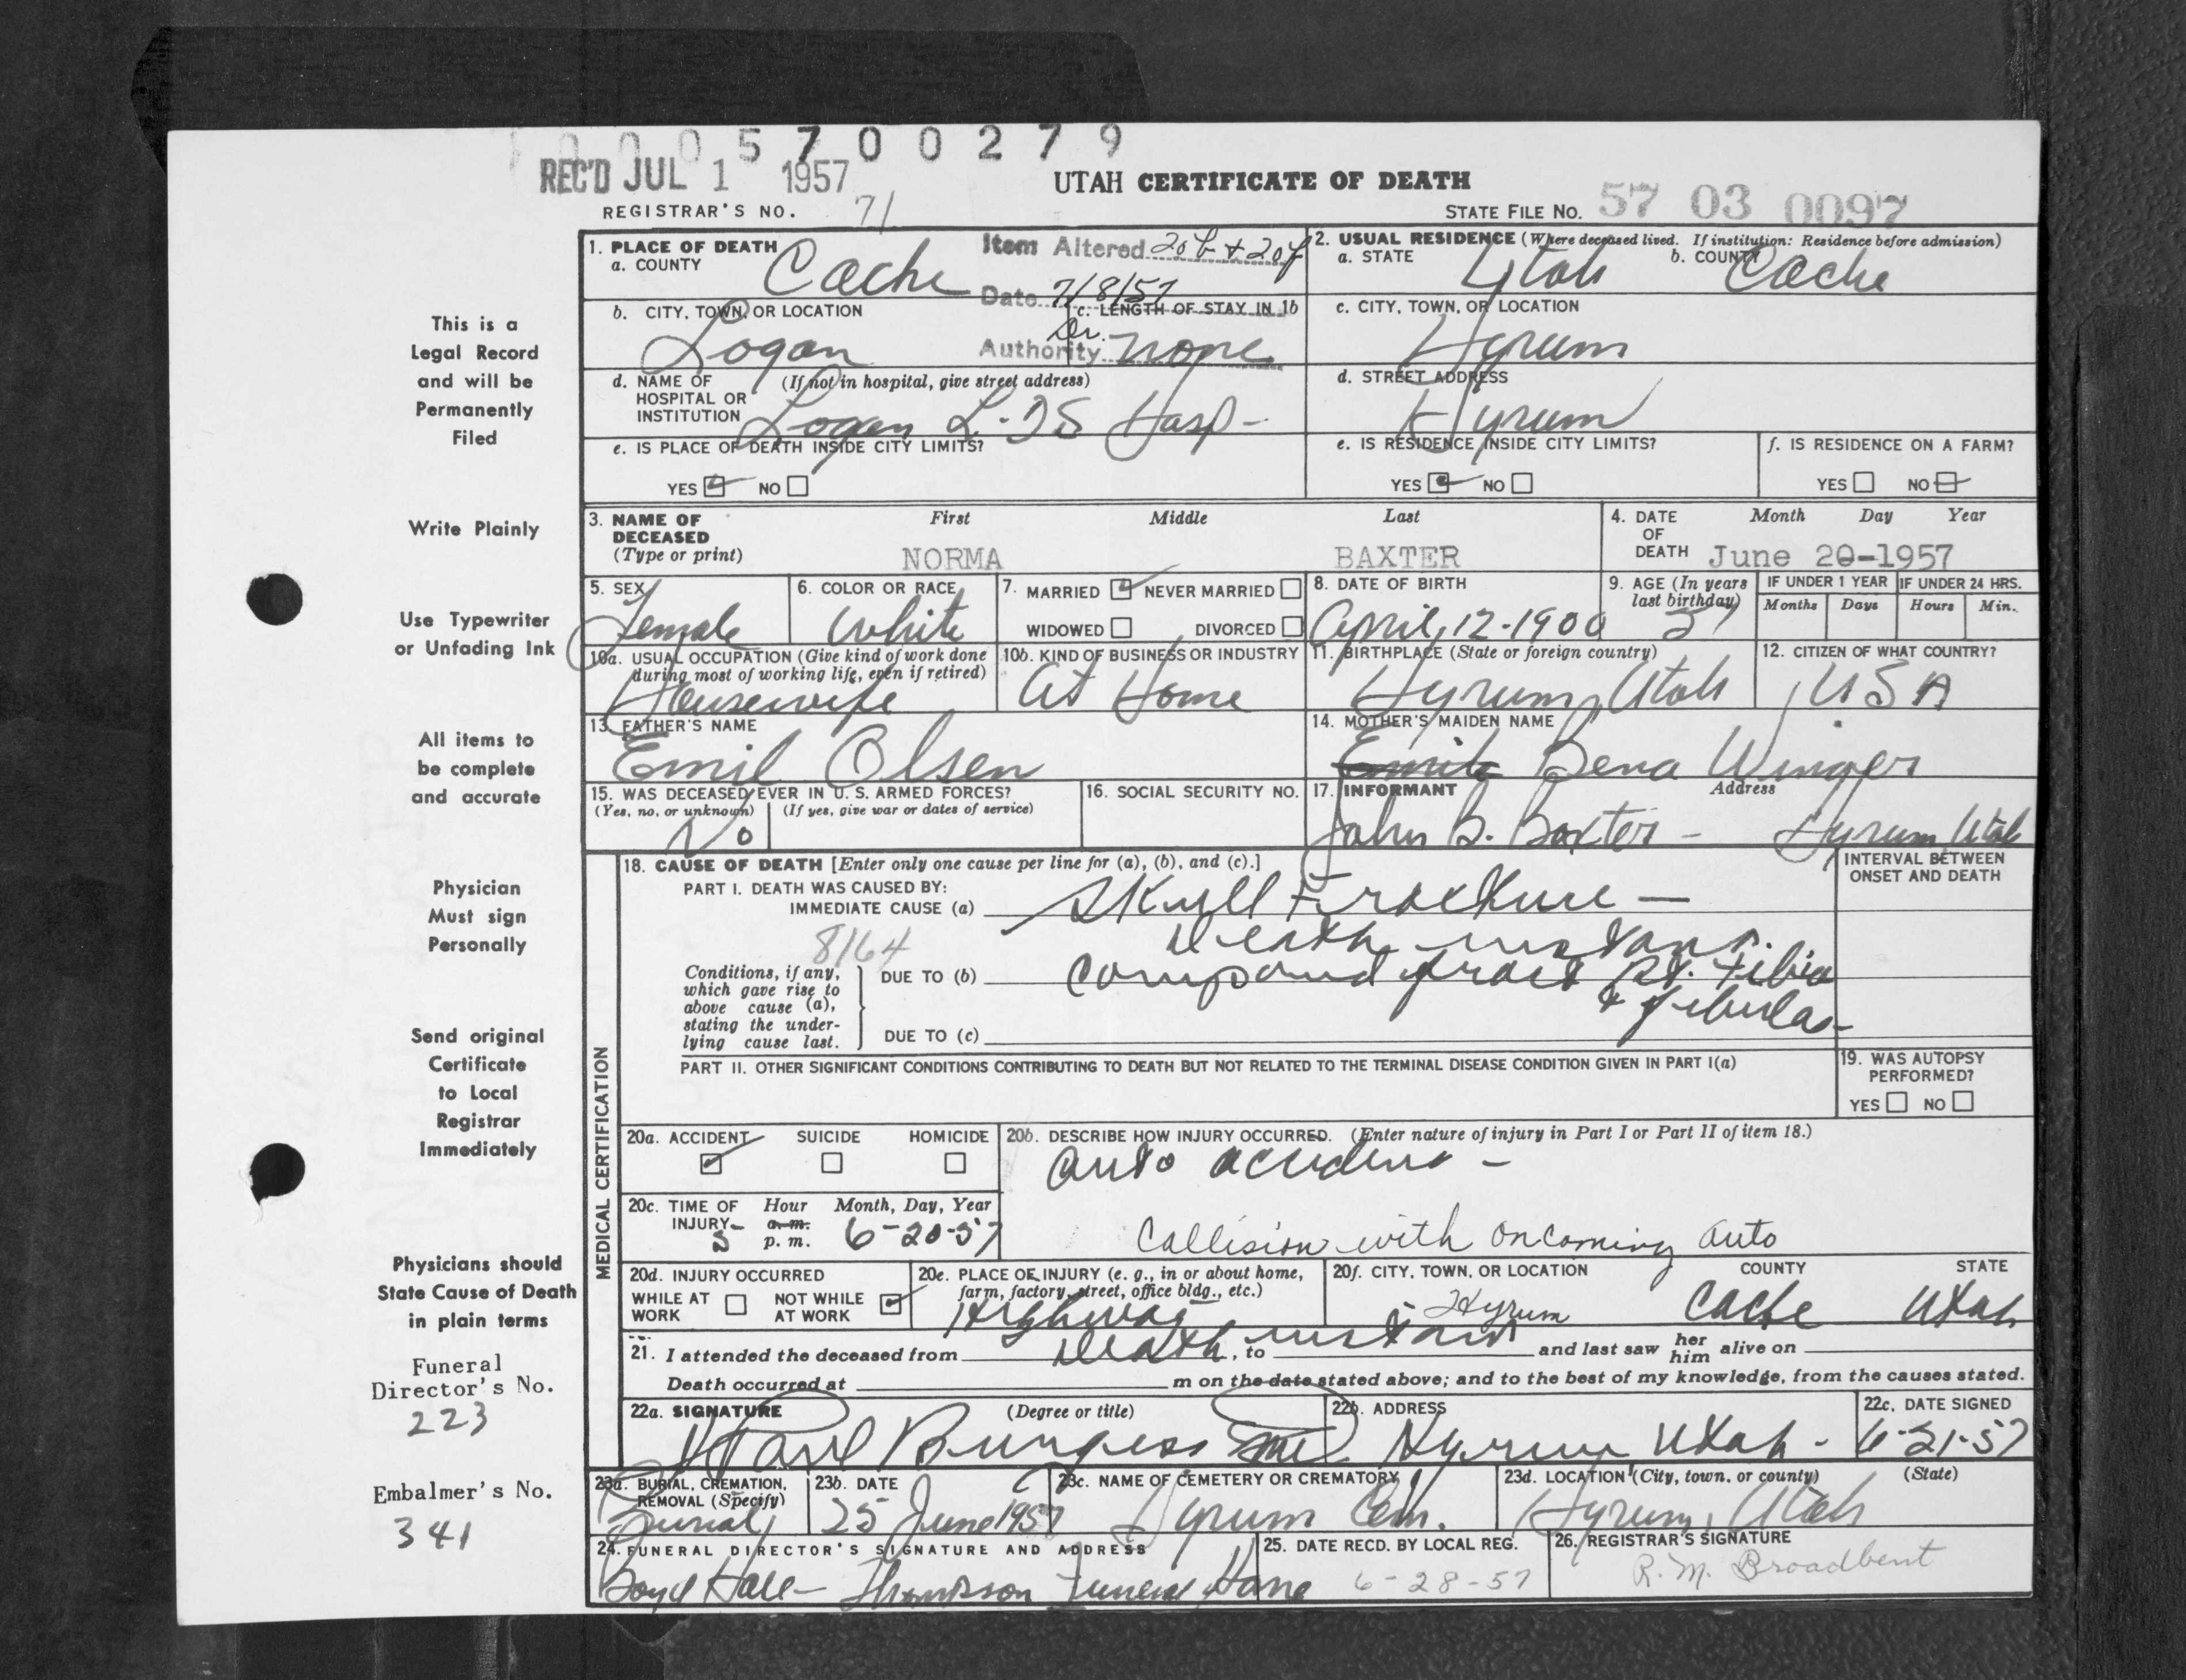 0 0 0 5 7 0 0 2 7 9
REC'D JUL 1 1957
UTAH CERTIFICATE OF DEATH
REGISTRAR'S NO. 71
STATE FILE NO. 57 03 0097
This is a
Legal Record
and will be
Permanently
Filed
Write Plainly
Use Typewriter
or Unfading Ink
All items to
be complete
and accurate
Physician
Must sign
Personally
Send original
Certificate
to Local
Registrar
Immediately
Physicians should
State Cause of Death
in plain terms
Funeral
Director's No.
223
Embalmer's No.
341
1. PLACE OF DEATH
a. COUNTY Cache
Item Altered 20b + 20f
Date 7/8/57
Authority Dr.
2. USUAL RESIDENCE (Where deceased lived. If institution: Residence before admission)
a. STATE Utah b. COUNTY Cache
b. CITY, TOWN, OR LOCATION
Logan
c. LENGTH OF STAY IN 1b
none
c. CITY, TOWN, OR LOCATION
Hyrum
d. NAME OF (If not in hospital, give street address)
HOSPITAL OR
INSTITUTION Logan L-DS Hosp-
d. STREET ADDRESS
Hyrum
e. IS PLACE OF DEATH INSIDE CITY LIMITS?
YES NO
e. IS RESIDENCE INSIDE CITY LIMITS?
YES NO
f. IS RESIDENCE ON A FARM?
YES NO
3. NAME OF
DECEASED
(Type or print)
First Middle Last
NORMA BAXTER
4. DATE
OF
DEATH
Month Day Year
June 20-1957
5. SEX
Female
6. COLOR OR RACE
White
7. MARRIED NEVER MARRIED
WIDOWED DIVORCED
8. DATE OF BIRTH
April, 12-1900
9. AGE (In years
last birthday)
57
IF UNDER 1 YEAR
Months Days
IF UNDER 24 HRS.
Hours Min.
10a. USUAL OCCUPATION (Give kind of work done
during most of working life, even if retired)
Housewife
10b. KIND OF BUSINESS OR INDUSTRY
At Home
11. BIRTHPLACE (State or foreign country)
Hyrum, Utah
12. CITIZEN OF WHAT COUNTRY?
USA
13. FATHER'S NAME
Emil Olsen
14. MOTHER'S MAIDEN NAME
Bena Winger
15. WAS DECEASED EVER IN U. S. ARMED FORCES?
(Yes, no, or unknown) (If yes, give war or dates of service)
No
16. SOCIAL SECURITY NO.
17. INFORMANT Address
John B. Baxter - Hyrum, Utah
MEDICAL CERTIFICATION
18. CAUSE OF DEATH [Enter only one cause per line for (a), (b), and (c).]
INTERVAL BETWEEN
ONSET AND DEATH
PART I. DEATH WAS CAUSED BY:
IMMEDIATE CAUSE (a) Skull Fracture —
8164
Death instant.
Conditions, if any,
which gave rise to
above cause (a),
stating the under-
lying cause last.
DUE TO (b) Compound fract Rt. Tibia
& fibula-
DUE TO (c)
PART II. OTHER SIGNIFICANT CONDITIONS CONTRIBUTING TO DEATH BUT NOT RELATED TO THE TERMINAL DISEASE CONDITION GIVEN IN PART I(a)
19. WAS AUTOPSY
PERFORMED?
YES NO
20a. ACCIDENT SUICIDE HOMICIDE
20b. DESCRIBE HOW INJURY OCCURRED. (Enter nature of injury in Part I or Part II of item 18.)
auto accident -
Collision with oncoming auto
20c. TIME OF
INJURY
Hour Month, Day, Year
a.m.
5 p. m. 6-20-57
20d. INJURY OCCURRED
WHILE AT
WORK
NOT WHILE
AT WORK
20e. PLACE OF INJURY (e. g., in or about home,
farm, factory, street, office bldg., etc.)
Highway
20f. CITY, TOWN, OR LOCATION COUNTY STATE
Hyrum Cache Utah
21. I attended the deceased from Death, to instant and last saw her him alive on
Death occurred at m on the date stated above; and to the best of my knowledge, from the causes stated.
22a. SIGNATURE (Degree or title)
Paul Burgess MD
22b. ADDRESS
Hyrum Utah -
22c. DATE SIGNED
6-21-57
23a. BURIAL, CREMATION,
REMOVAL (Specify)
Burial
23b. DATE
25 June 1957
23c. NAME OF CEMETERY OR CREMATORY
Hyrum Cem.
23d. LOCATION (City, town, or county) (State)
Hyrum, Utah
24. FUNERAL DIRECTOR'S SIGNATURE AND ADDRESS
Boyd Hall - Thompson Funeral Home
25. DATE RECD. BY LOCAL REG.
6-28-57
26. REGISTRAR'S SIGNATURE
R. M. Broadbent